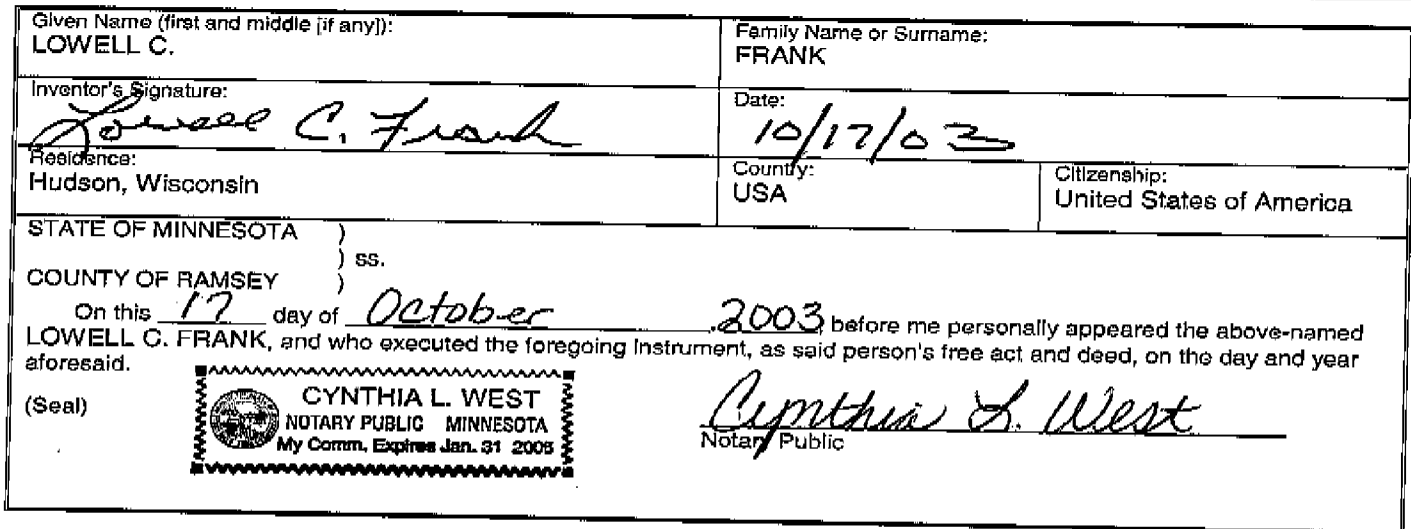 Given Name (first and middle [if any]):
LOWELL C.
Family Name or Surname:
FRANK
Inventor's Signature:
Lowell C. Frank
Date:
10/17/03
Residence:
Hudson, Wisconsin
Country:
USA
Citizenship:
United States of America
STATE OF MINNESOTA )
) ss.
COUNTY OF RAMSEY )
On this 17 day of October, 2003, before me personally appeared the above-named
LOWELL C. FRANK, and who executed the foregoing instrument, as said person's free act and deed, on the day and year
aforesaid.
(Seal)
CYNTHIA L. WEST
NOTARY PUBLIC MINNESOTA
My Comm. Expires Jan. 31 2005
Cynthia L. West
Notary Public